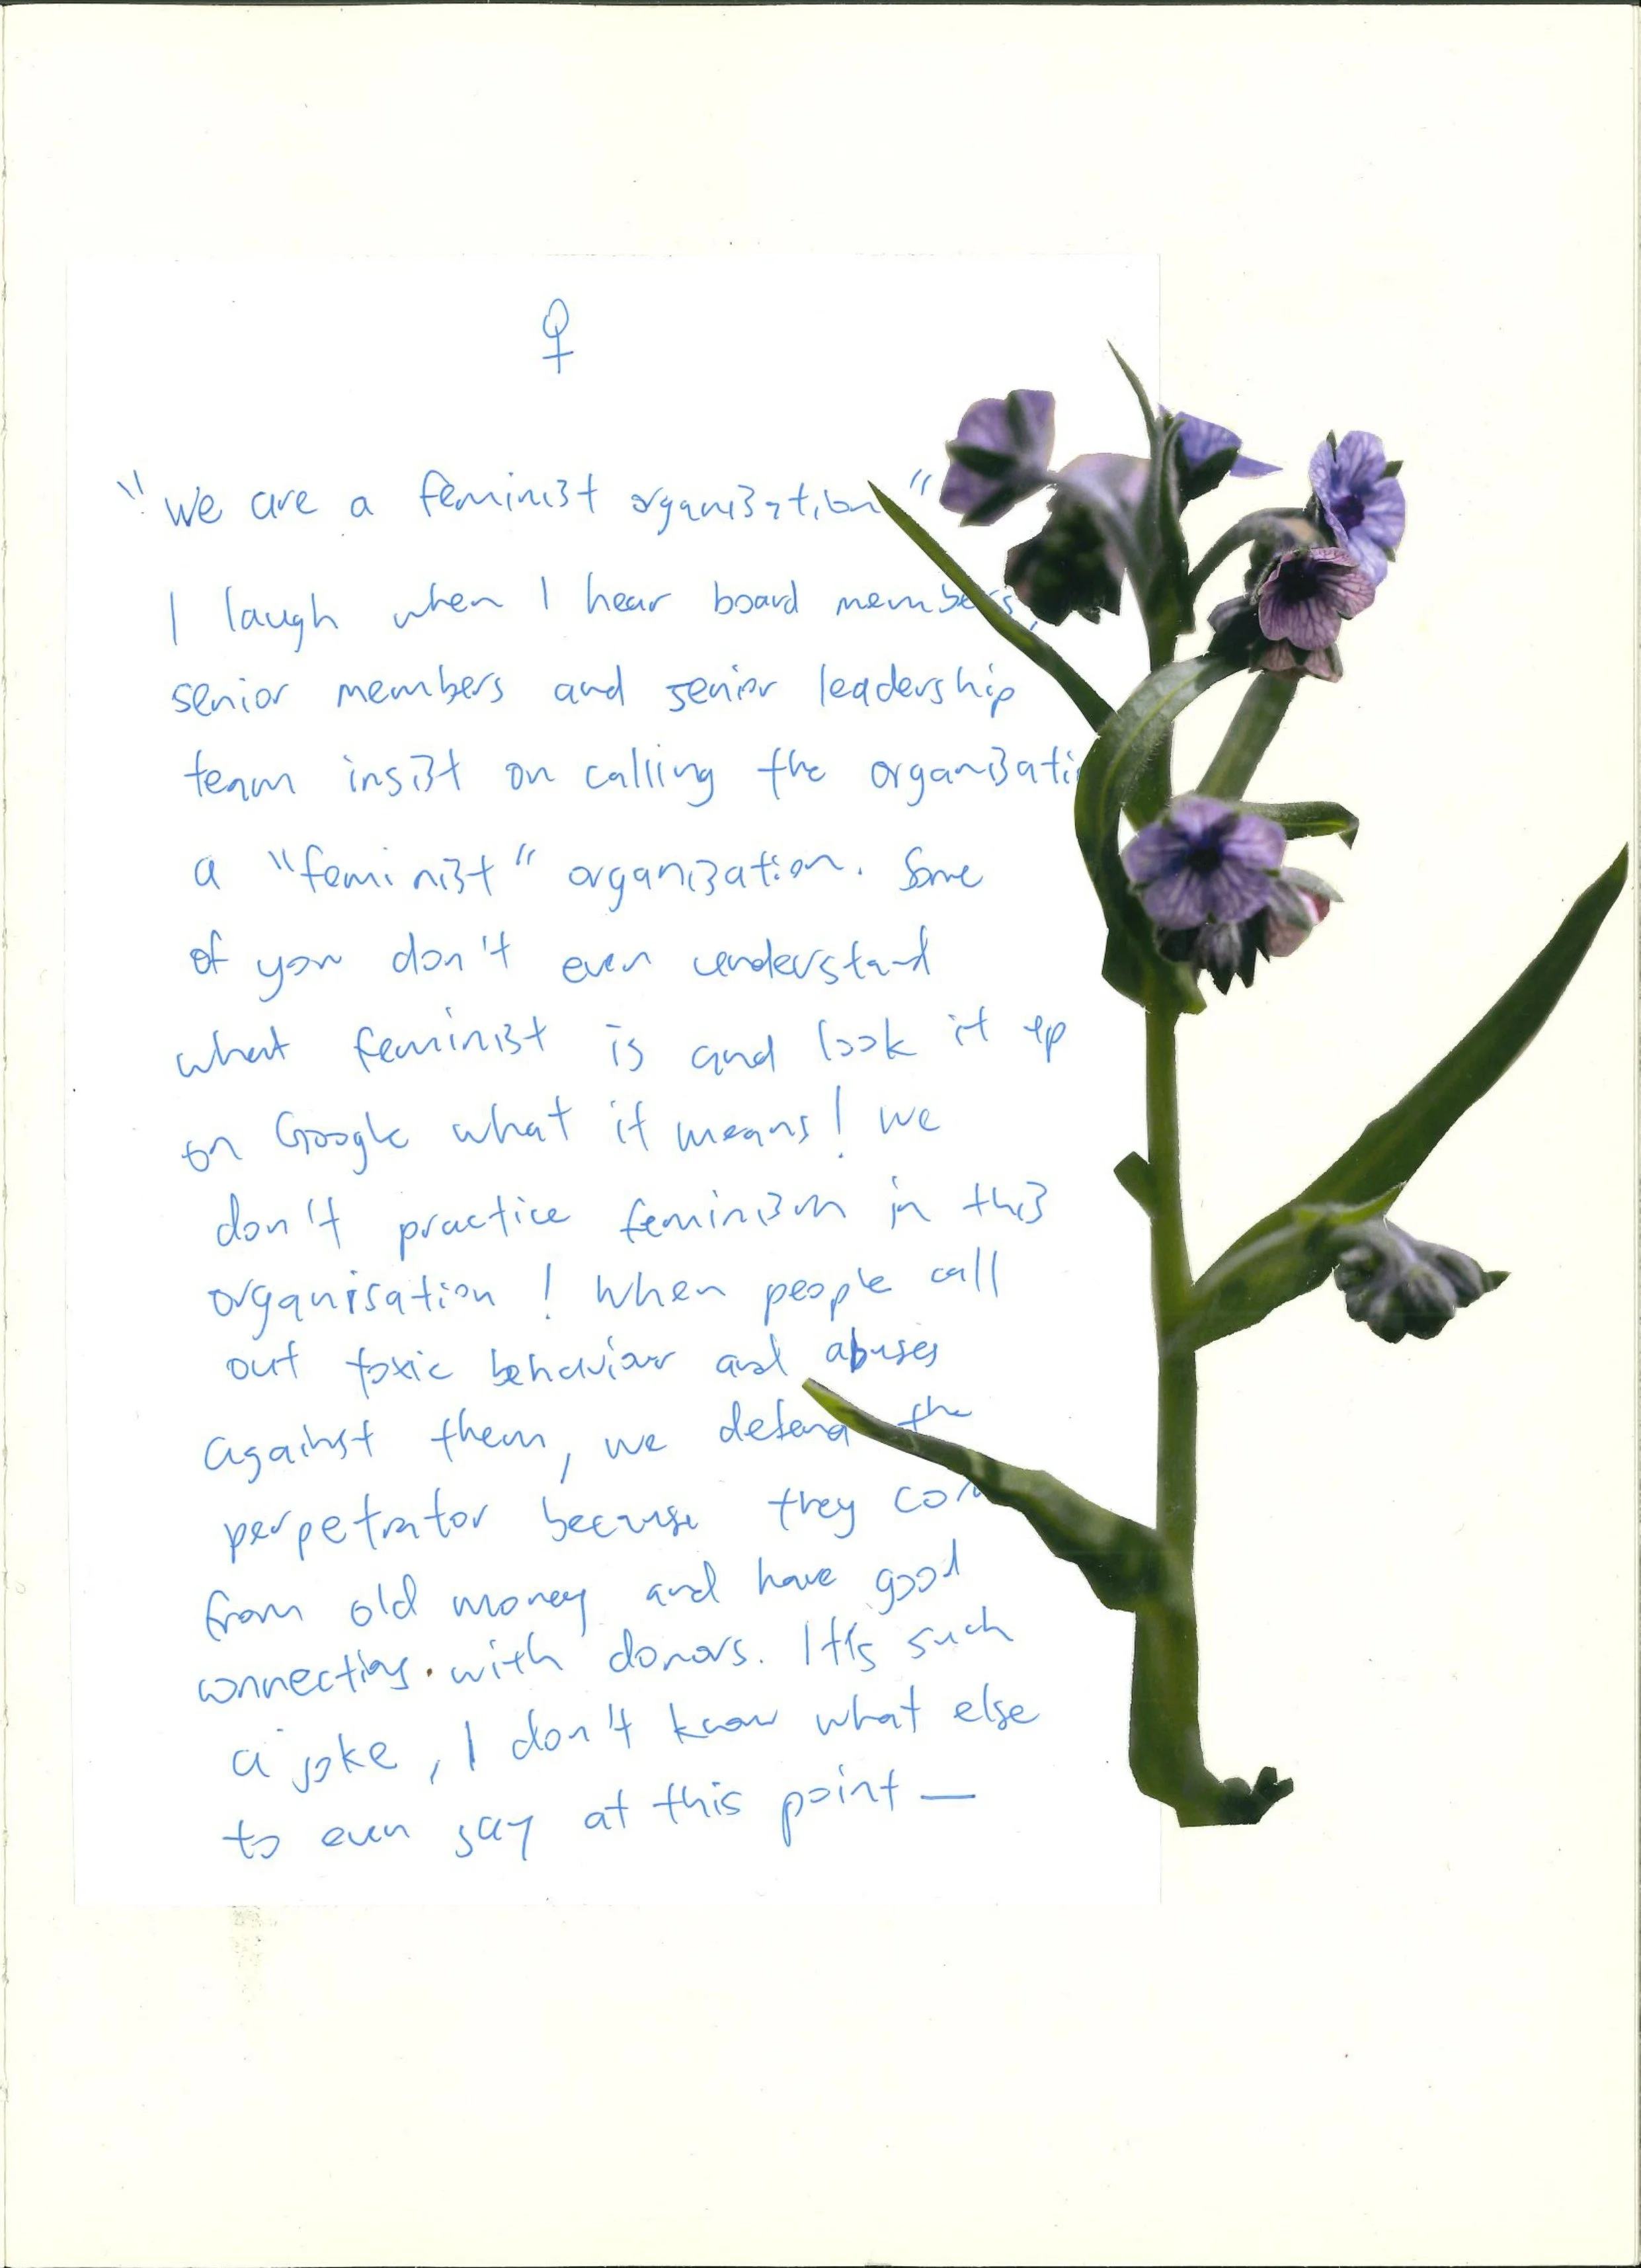 ♀
"We are a feminist organisation"
I laugh when I hear board members,
senior members and senior leadership
team insist on calling the organisati
a "feminist" organisation. Some
of you don't even understand
what feminist is and look it up
on Google what it means! We
don't practice feminism in this
organisation! When people call
out toxic behaviour and abuses
against them, we defend the
perpetrator because they com
from old money and have good
connections with donors. It's such
a joke, I don't know what else
to even say at this point —